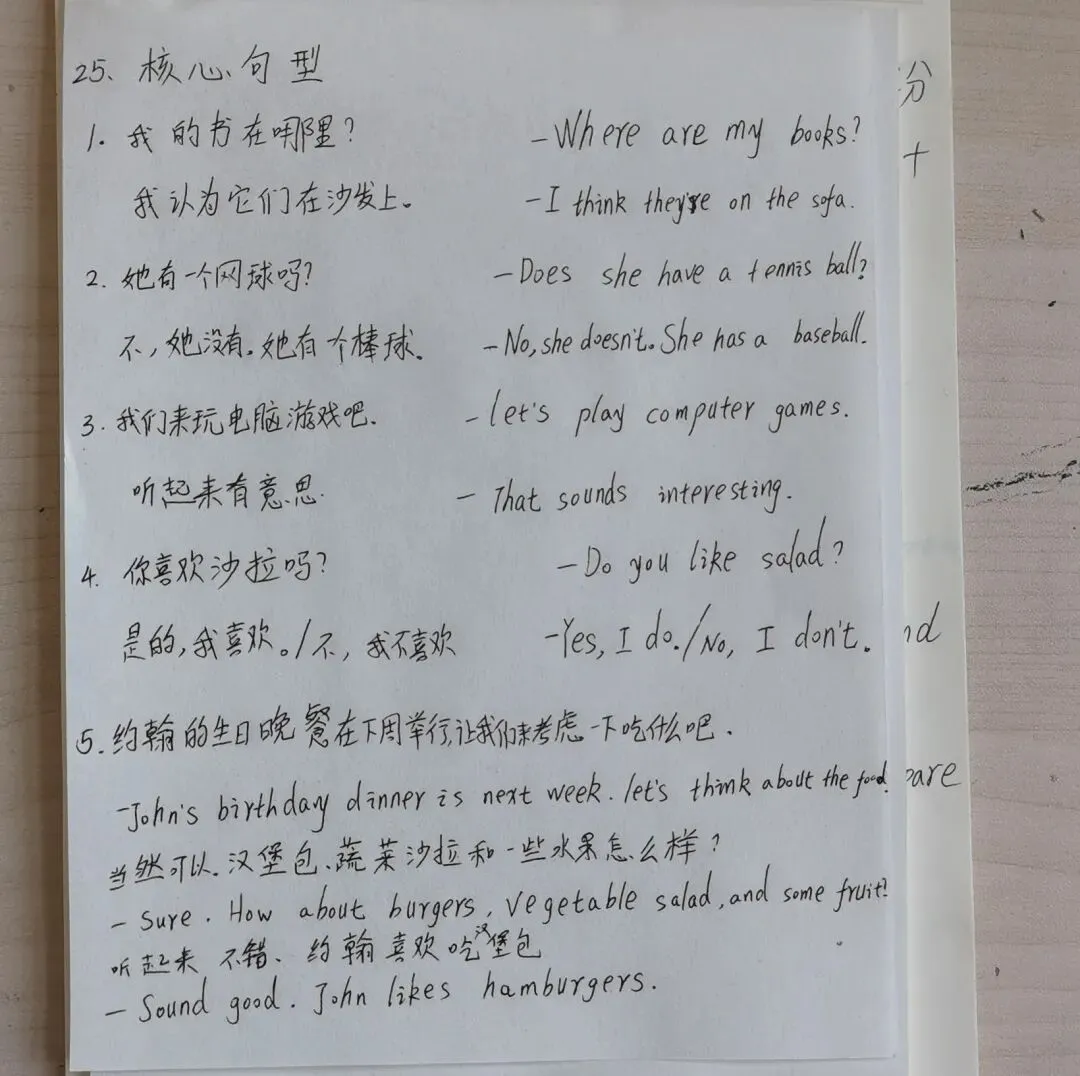 25、核心句型
1. 我的书在哪里? -Where are my books?
我认为它们在沙发上。 -I think they're on the sofa.
2. 她有一个网球吗? -Does she have a tennis ball?
不,她没有。她有个棒球。 -No, she doesn't. She has a baseball.
3. 我们来玩电脑游戏吧. -let's play computer games.
听起来有意思. - That sounds interesting.
4. 你喜欢沙拉吗? -Do you like salad?
是的,我喜欢。/不,我不喜欢 -Yes, I do./No, I don't.
5. 约翰的生日晚餐在下周举行,让我们来考虑一下吃什么吧.
-John's birthday dinner is next week. let's think about the food.
当然可以.汉堡包、蔬菜沙拉和一些水果怎么样?
- Sure. How about burgers, vegetable salad, and some fruit?
听起来不错、约翰喜欢吃汉堡包
- Sound good. John likes hamburgers.
份
+
nd
pare